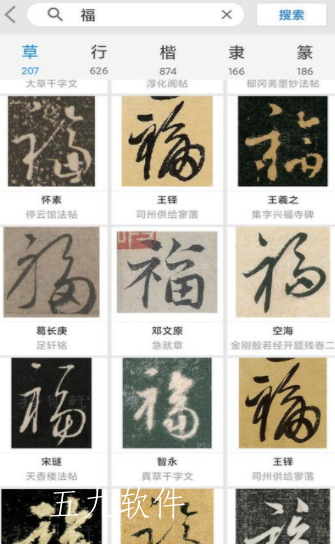 福
搜索
草 行 楷 隶 篆
207 626 874 166 186
大草千字文 淳化阁帖 郁冈斋墨妙法帖
福 福 福
怀素 王铎 王羲之
停云馆法帖 司州供给寥落 集字兴福寺碑
福 福 福
葛长庚 邓文原 空海
足轩铭 急就章 金刚般若经开题残卷二
福 福 福
宋璲 智永 王铎
天香楼法帖 真草千字文 司州供给寥落
五九软件